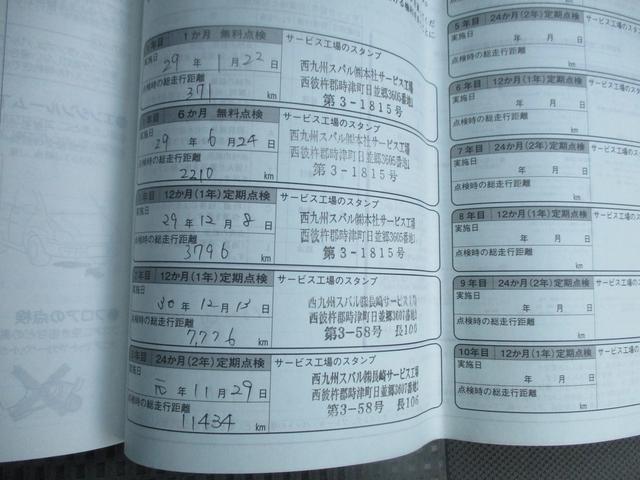 1か月 無料点検
サービス工場のスタンプ
実施日
29 年 1 月 22 日
点検時の総走行距離
371 km
西九州スバル㈱本社サービス工場
西彼杵郡時津町日並郷3605番地1
第3-1815号
6か月 無料点検
サービス工場のスタンプ
実施日
29 年 6 月 24 日
点検時の総走行距離
2210 km
西九州スバル㈱本社サービス工場
西彼杵郡時津町日並郷3605番地1
第3-1815号
12か月(1年)定期点検
サービス工場のスタンプ
実施日
29 年 12 月 8 日
点検時の総走行距離
3796 km
西九州スバル㈱本社サービス工場
西彼杵郡時津町日並郷3605番地1
第3-1815号
12か月(1年)定期点検
サービス工場のスタンプ
実施日
30 年 12 月 13 日
点検時の総走行距離
7,776 km
西九州スバル㈱長崎サービス工場
西彼杵郡時津町日並郷3607番地1
第3-58号 長106
24か月(2年)定期点検
サービス工場のスタンプ
実施日
元 年 11 月 29 日
点検時の総走行距離
11434 km
西九州スバル㈱長崎サービス工場
西彼杵郡時津町日並郷3607番地1
第3-58号 長106
5年目 24か月(2年)定期点検
実施日
年 月 日
点検時の総走行距離
km
6年目 12か月(1年)定期点検
実施日
年 月 日
点検時の総走行距離
km
7年目 24か月(2年)定期点検
実施日
年 月 日
点検時の総走行距離
km
8年目 12か月(1年)定期点検
実施日
年 月 日
点検時の総走行距離
km
9年目 24か月(2年)定期点検
実施日
年 月 日
点検時の総走行距離
km
10年目 12か月(1年)定期点検
実施日
年 月 日
点検時の総走行距離
km
フロアの点検